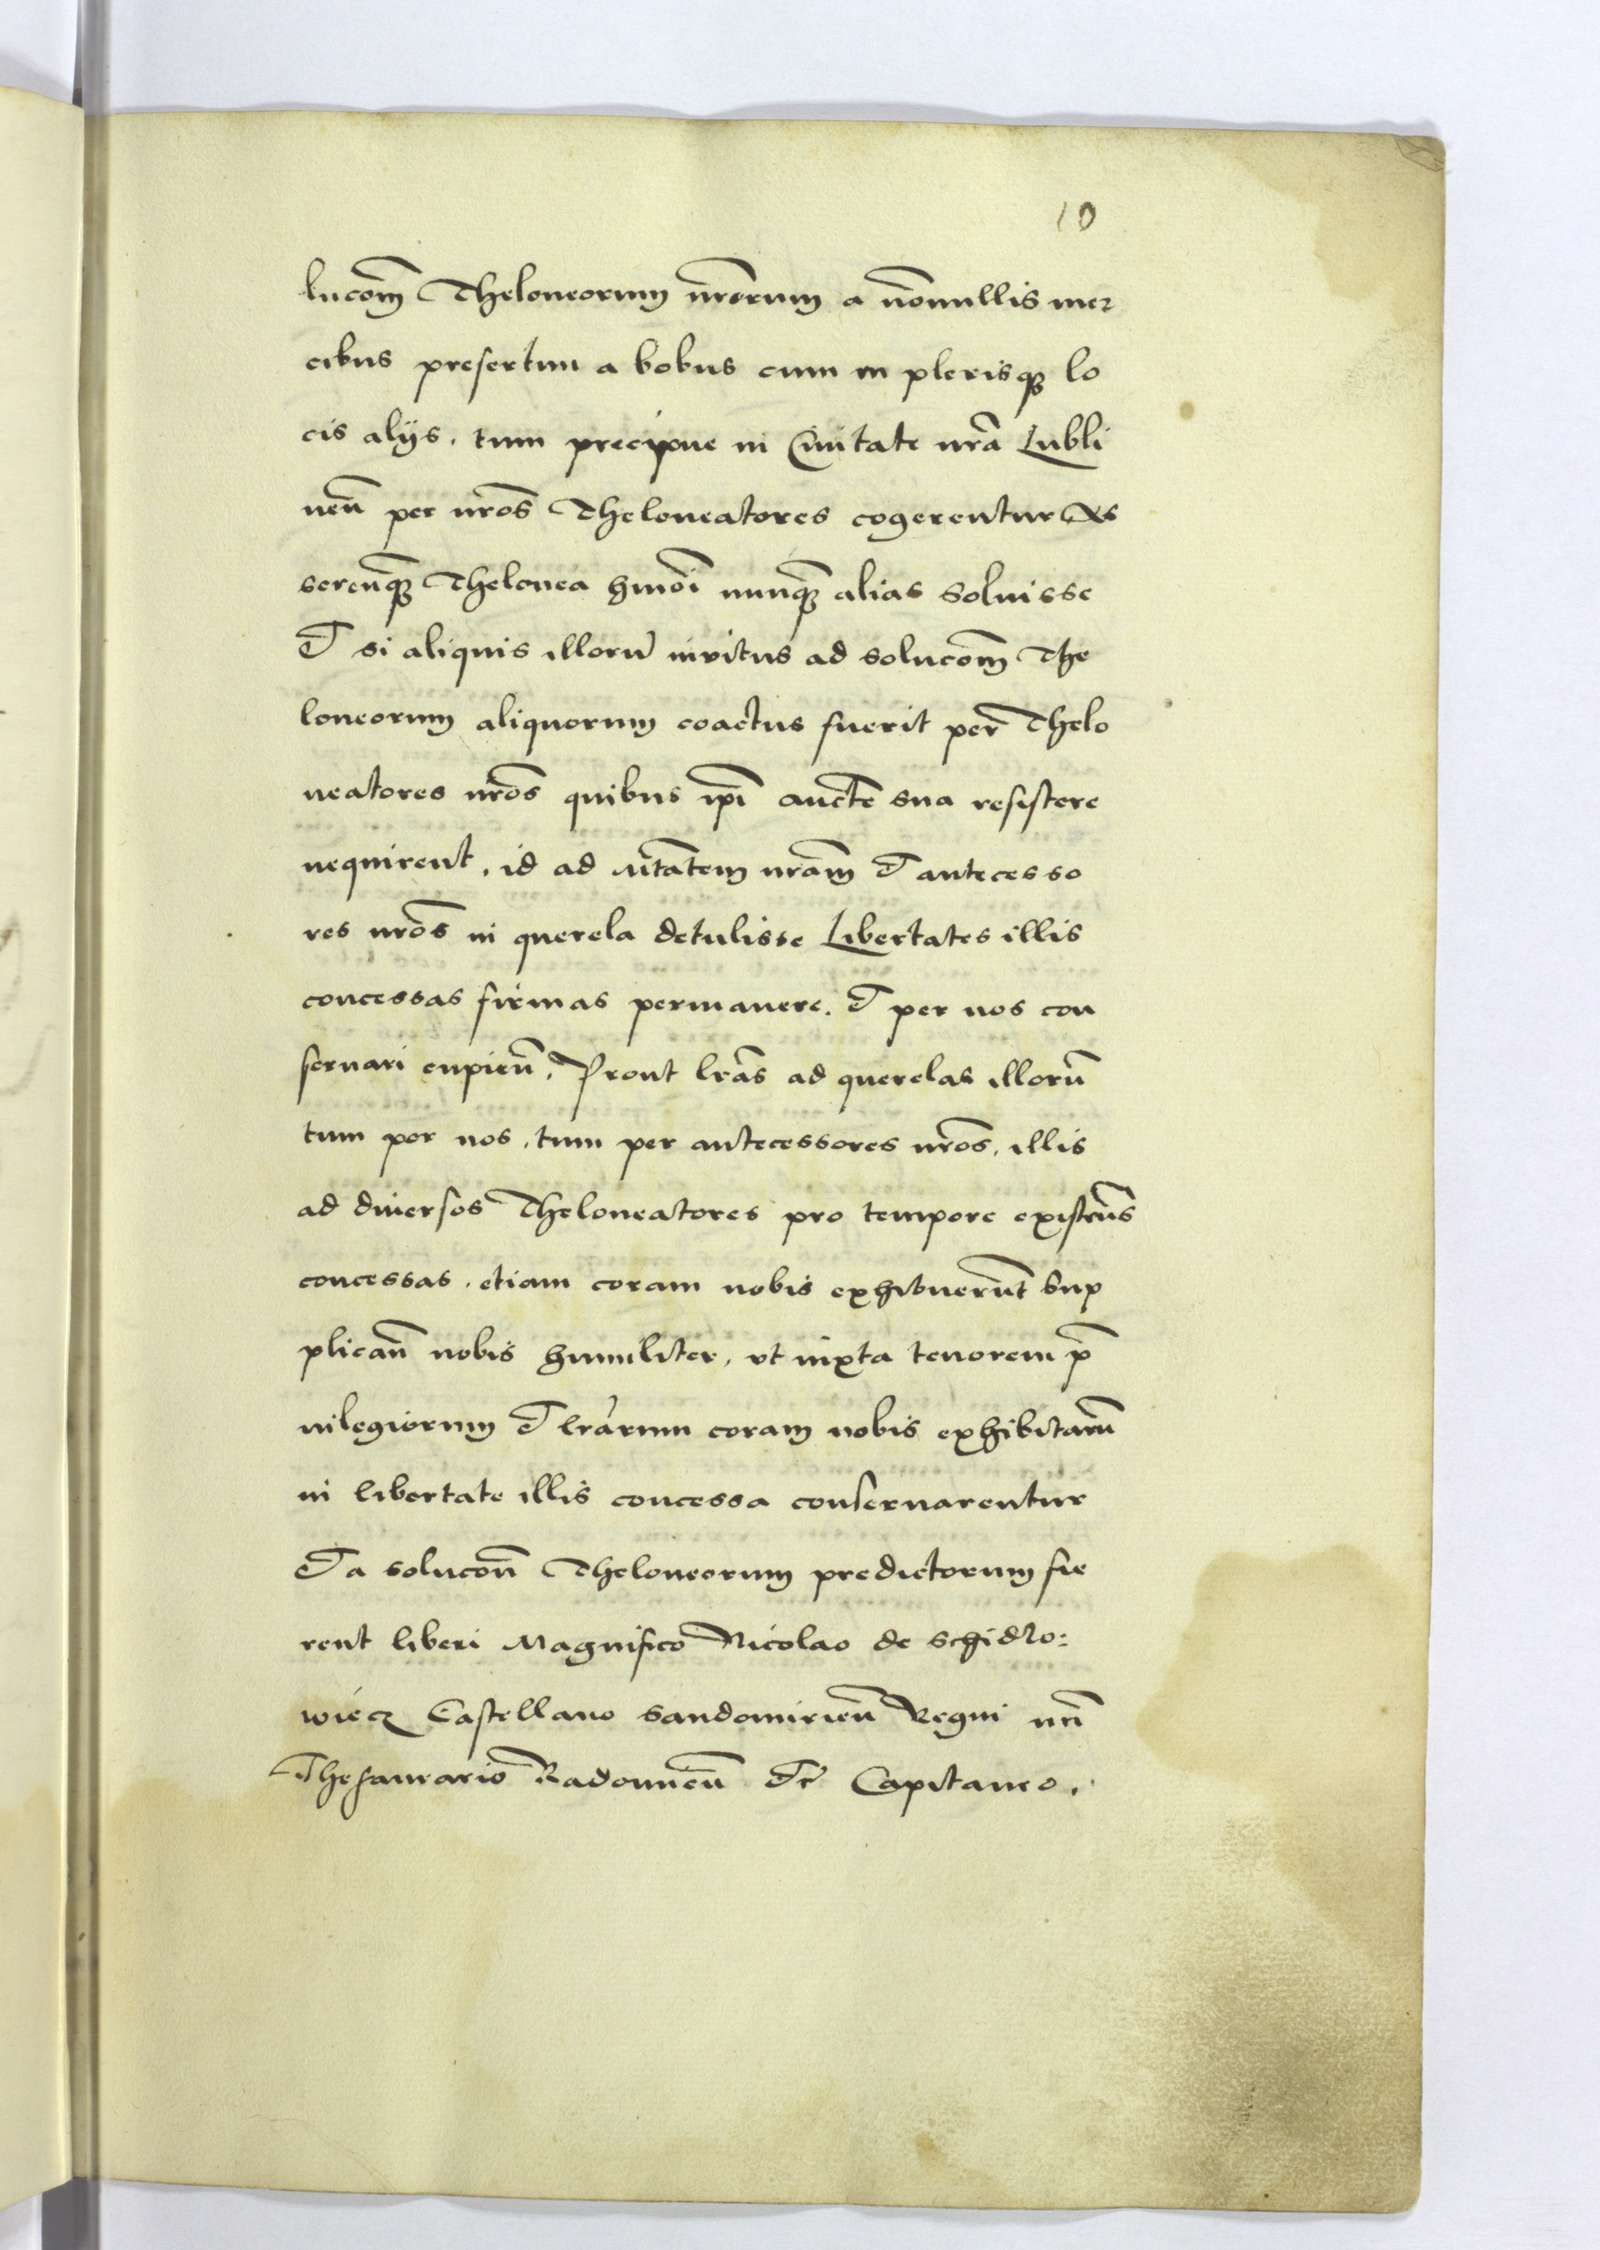 10
lucom̄ Theloneorum nr̄orum a nōnullis mer
cibus presertim a bobus cum in plerisq3 lo
cis alÿs. tum precipue in Ciuitate nr̄a Lubli
nen̄ per nr̄os Theloneatores cogerentur As
seren̄q3 Thelonea hmōi nunq3 alias soluisse
Et si aliquis illorū inuitus ad solucom̄ The
loneorum aliquorum coactus fuerit per Thelo
neatores nr̄os quibus ip̄i auct̄e sua resistere
nequirent, id ad Mtātem nr̄am et antecesso
res nr̄os in querela detulisse Libertates illis
concessas firmas permanere. Et per nos con
seruari cupien̄. Prout lr̄as ad querelas illorū
tum per nos, tum per antecessores nr̄os, illis
ad diuersos Theloneatores pro tempore existen̄s
concessas. etiam coram nobis exhibuerūt Sup
plican̄ nobis humiliter, vt iuxta tenorem p̄
uilegiorum Et lr̄arum coram nobis exhibitarū
in libertate illis concessa conseruarentur
Et a solucon̄ Theloneorum predictorum fie
rent liberi Magnifico Nicolao de Schidlo:
wiecz Castellano Sandomirien̄ Regni nr̄i
Thesaurario Radomien̄ Etc̄ Capitaneo.